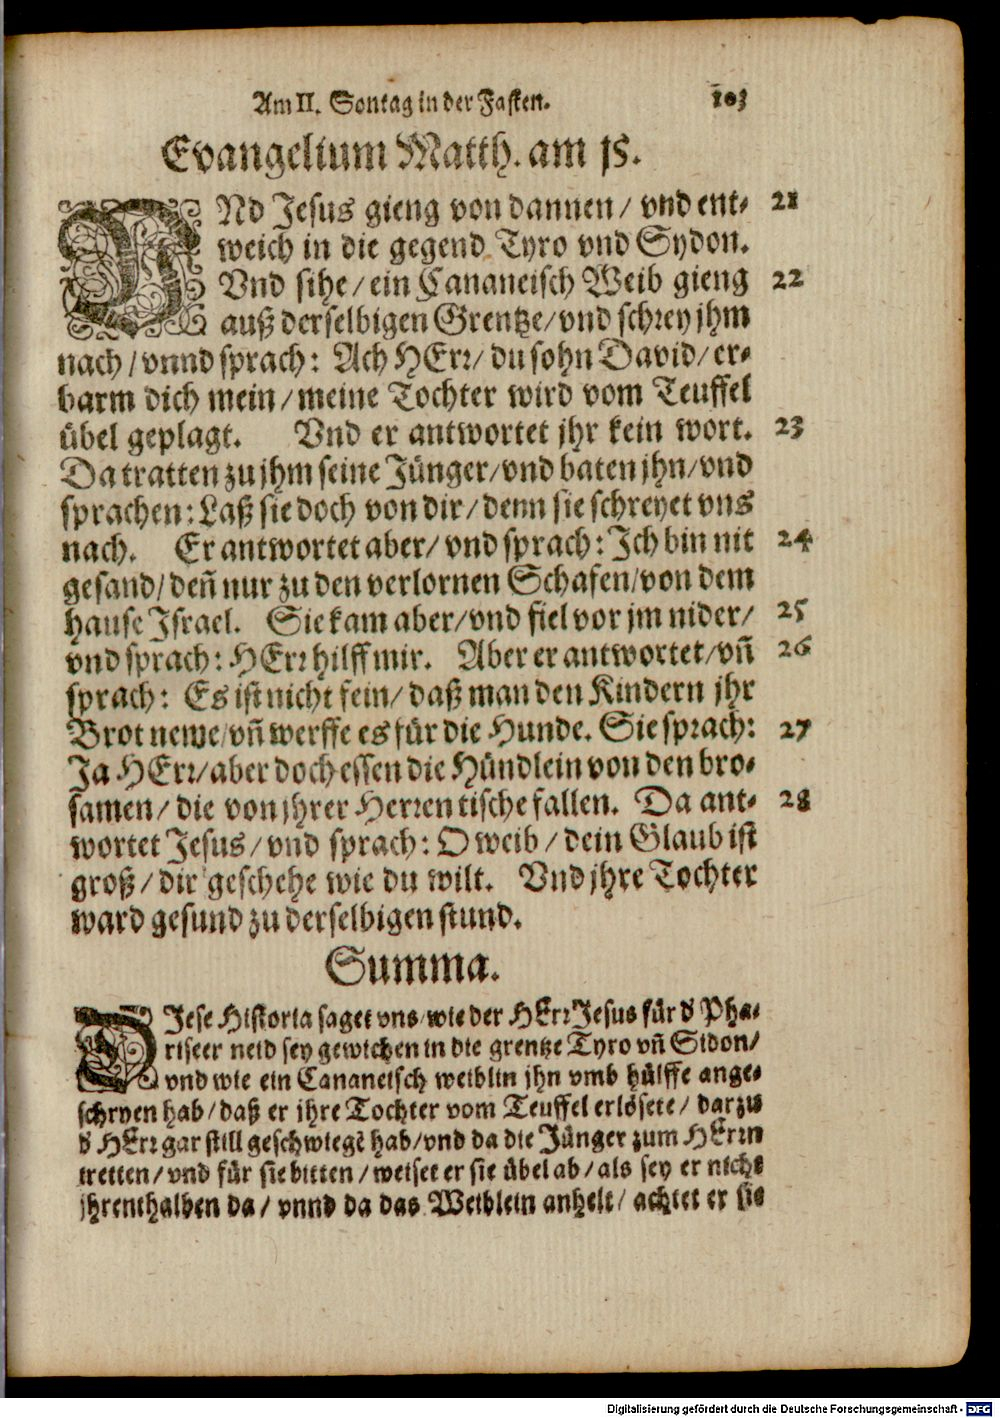 Am II. Sontag in der Fasten. 103
Evangelium Matth. am 15.
VNd Jesus gieng von dannen / vnd ent- 21
weich in die gegend Tyro vnd Sydon.
Vnd sihe / ein Cananeisch Weib gieng 22
auß derselbigen Grentze / vnd schrey jhm
nach / vnnd sprach: Ach HErr / du sohn David / er-
barm dich mein / meine Tochter wird vom Teuffel
übel geplagt. Vnd er antwortet jhr kein wort. 23
Da tratten zu jhm seine Jünger / vnd baten jhn / vnd
sprachen: Laß sie doch von dir / denn sie schreyet vns
nach. Er antwortet aber / vnd sprach: Ich bin nit 24
gesand / deñ nur zu den verlornen Schafen / von dem
hause Israel. Sie kam aber / vnd fiel vor jm nider / 25
vnd sprach: HErr hilff mir. Aber er antwortet / vñ 26
sprach: Es ist nicht fein / daß man den Kindern jhr
Brot neme / vñ werffe es für die Hunde. Sie sprach: 27
Ja HErr / aber doch essen die Hündlein von den bro-
samen / die von jhrer Herren tische fallen. Da ant- 28
wortet Jesus / vnd sprach: O weib / dein Glaub ist
groß / dir geschehe wie du wilt. Vnd jhre Tochter
ward gesund zu derselbigen stund.
Summa.
DIese Historia saget vns / wie der HErr Jesus für d' Pha-
riseer neid sey gewichen in die grentze Tyro vñ Sidon /
vnd wie ein Cananeisch weiblin jhn vmb hülffe ange-
schryen hab / daß er jhre Tochter vom Teuffel erlösete / darzu
d' HErr gar still geschwigẽ hab / vnd da die Jünger zum HErrn
tretten / vnd für sie bitten / weiset er sie übel ab / als sey er nicht
jhrenthalben da / vnnd da das Weiblein anhelt / achtet er sie
Digitalisierung gefördert durch die Deutsche Forschungsgemeinschaft - DFG